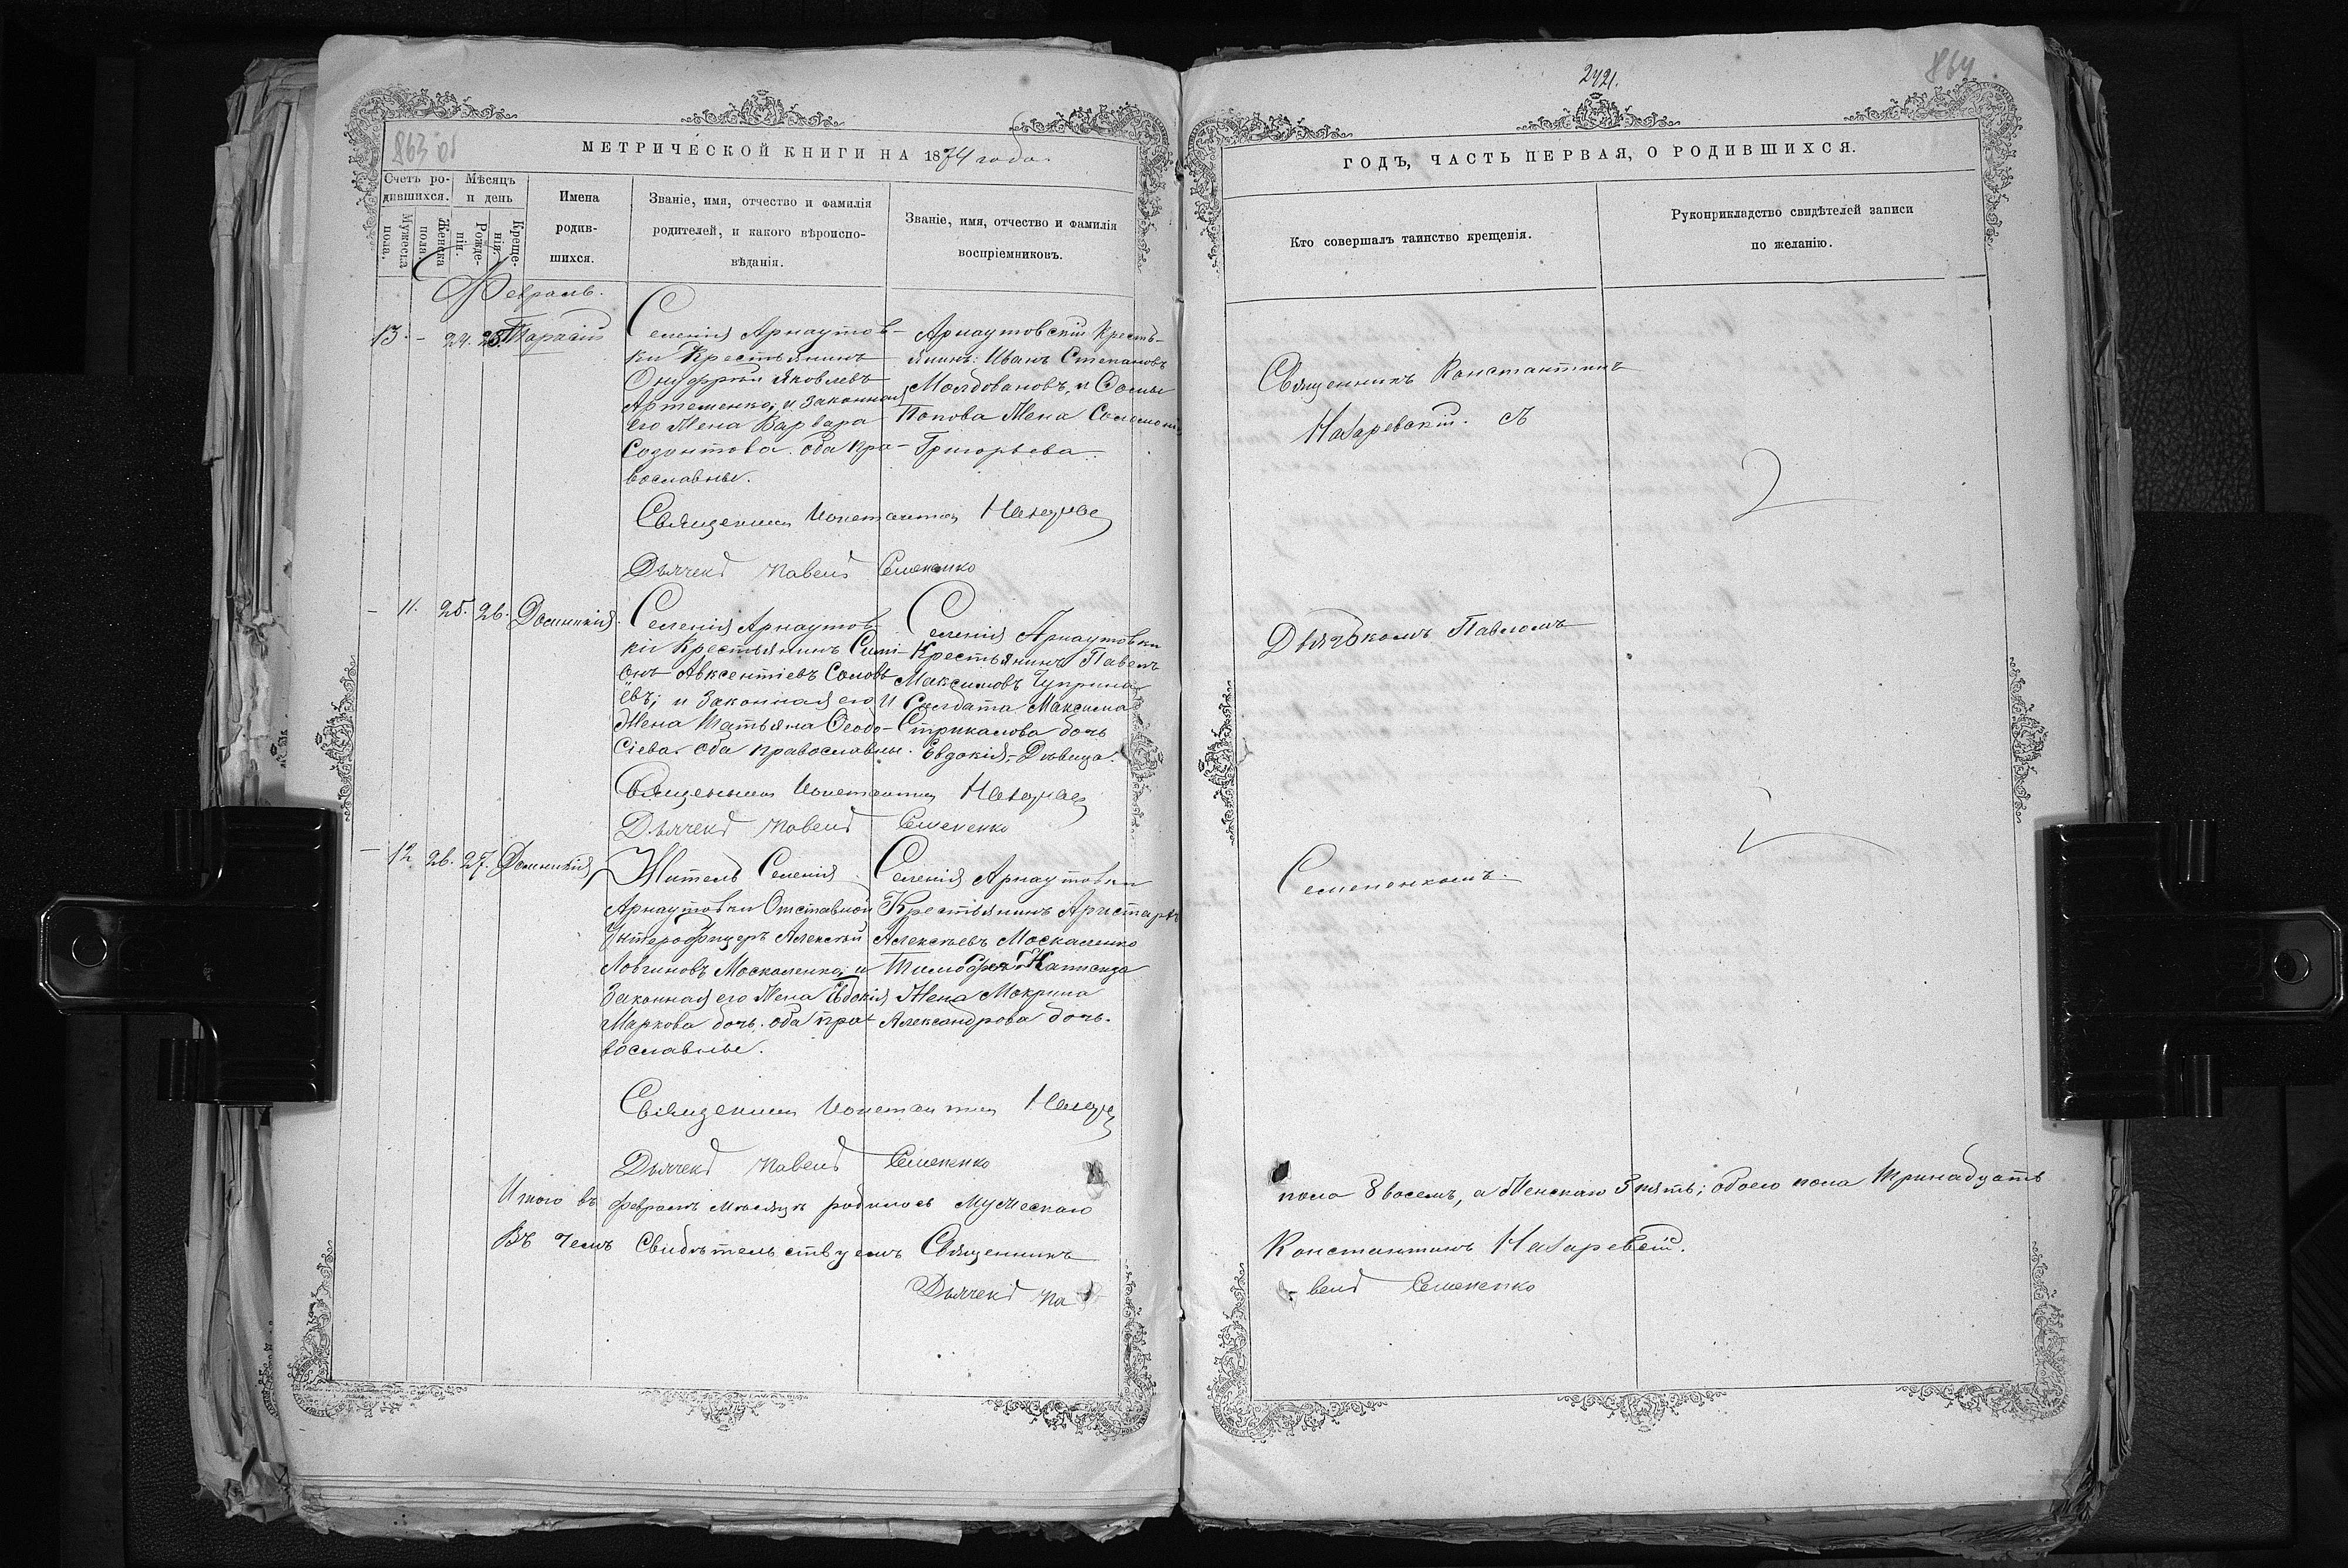 863 об
МЕТРИЧЕСКОЙ КНИГИ НА 1874 года.
Счетъ ро-
дившихся.
Мѣсяцъ
и день
Мужеска
пола.
Женска
пола.
Рожде-
нія.
Креще-
нія.
Имена
родив-
шихся.
Званіе, имя, отчество и фамилія
родителей, и какого вѣроиспо-
вѣданія.
Званіе, имя, отчество и фамилія
воспріемниковъ.
Февраль.
13. - 24. 25. Тарасій
Селенія Арнаутов-
ки Крестьянинъ
Онуфрій Яковлевъ
Артеменко, и законная
его Жена Варвара
Созонтова. оба пра-
вославные.
Арнаутовскій Кресть-
янинъ: Иванъ Степановъ
Молдовановъ, и Фомы
Попова Жена Соломонія
Григорьева.
Священникъ Константинъ
Дьячекъ Павелъ Семененко
- 11. 25. 26. Домникія.
Селенія Арнаутов-
ки Крестьянинъ Симі-
онъ Авксентіевъ Соловь
евъ; и Законная его
Жена Татьяна Ѳеодо-
сіева. Оба православны.
Селенія Арнаутовки
Крестьянинъ Павелъ
Максимовъ Чуприна
и Солдата Максима
Стрикалова дочь
Евдокія-Дѣвица.
Священникъ Константинъ
Дьячекъ Павелъ Семененко
- 12. 26. 27. Домникія,
Житель Селенія
Арнаутовки Отставной
Унтерофицеръ Алексѣй
Логиновъ Москаленко, и
Законная его Жена Евдокія
Маркова дочь. оба пра-
вославные.
Селенія Арнаутовки
Крестьянинъ Аристархъ
Алексѣевъ Москаленко
Жена Макрина
Александрова дочь.
Священникъ Константинъ
Дьячекъ Павелъ Семененко
Итого въ Февралѣ Мѣсяцѣ родилось Мужескаго
Въ чемъ Свидѣтельствуемъ Священникъ
Дьячекъ Па
2421.
864
ГОДЪ, ЧАСТЬ ПЕРВАЯ, О РОДИВШИХСЯ.
Кто совершалъ таинство крещенія.
Рукоприкладство свидѣтелей записи
по желанію.
Священникъ Константинъ
Назаревскій. съ
Дьячкомъ Павломъ
Семененкомъ.
пола 8 восемь, а Женскаго 5 пять; обоего пола Тринадцать
Константинъ Назаревскій.
велъ Семененко